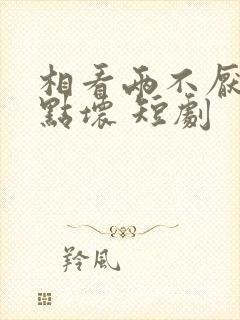 相看兩不厭
點壞 短劇
羚風